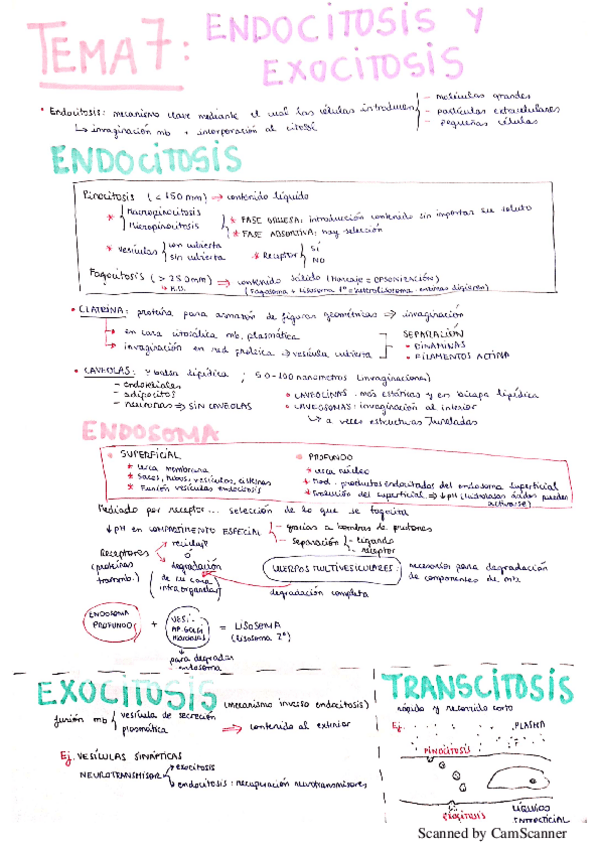 TEMA 7: ENDOCITOSIS Y
EXOCITOSIS
• Endocitosis: mecanismo clave mediante el cual las células introducen
– moléculas grandes
– partículas extracelulares
– pequeñas células
↳ invaginación mb + incorporación al citosol
ENDOCITOSIS
Pinocitosis (< 150 mm) → contenido líquido
* Macropinocitosis
Micropinocitosis
* FASE GRUESA: introducción contenido sin importar su soluto
* FASE ABSORTIVA: hay selección
* vesículas con cubierta
sin cubierta
* Receptor SÍ
NO
Fagocitosis (> 250mm) → contenido sólido (Marcaje = OPSONIZACIÓN)
(Fagosoma + Lisosoma 1º = heterolisosoma enzimas digieren)
• CLATRINA: proteína para armazón de figuras geométricas ⇒ invaginación
→ en cara citosólica mb. plasmática
→ invaginación en red proteica → vesícula cubierta
SEPARACIÓN
• DINAMINAS
• FILAMENTOS ACTINA
• CAVEOLAS: balsa lipídica ; 50-100 nanometros (invaginaciones)
– endoteliales
– adipocitos
– neuronas ⇒ SIN CAVEOLAS
• CAVEOLINAS: más estáticas y en bicapa lipídica
• CAVEOSOMAS: invaginación al interior
↳ a veces estructuras tuneladas
ENDOSOMA
• SUPERFICIAL
* cerca membrana
* Sacos, tubos, vesículas, cisternas
* Fusión vesículas endocitosis
• PROFUNDO
* cerca núcleo
* Mod. productos endocitados del endosoma superficial
* Evolución del superficial ⇒ ↓pH (hidrolasas ácidas pueden
activarse)
Mediado por receptor... selección de lo que se fagocita
↓ pH en COMPARTIMENTO ESPECIAL
– gracias a bombas de protones
– separación – ligando
– receptor
Receptores
(proteínas
transmb.)
reciclaje
ó
degradación
(de su cara
intraorganular)
CUERPOS MULTIVESICULARES: necesarios para degradación
de componentes de mb
degradación completa
ENDOSOMA
PROFUNDO
+
VESÍ-
AP. GOLGI
= LISOSOMA
(Lisosoma 2º)
para degradar
endosoma
EXOCITOSIS (mecanismo inverso endocitosis)
fusión mb vesícula de secreción
plasmática
⇒ contenido al exterior
Ej. VESÍCULAS SINÁPTICAS
NEUROTRANSMISOR
exocitosis
endocitosis: recuperación neurotransmisores
TRANSCITOSIS
rápido y recorrido corto
Ej.
PLASMA
PINOCITOSIS
EXOCITOSIS
LÍQUIDO
INTERSTICIAL
Scanned by CamScanner